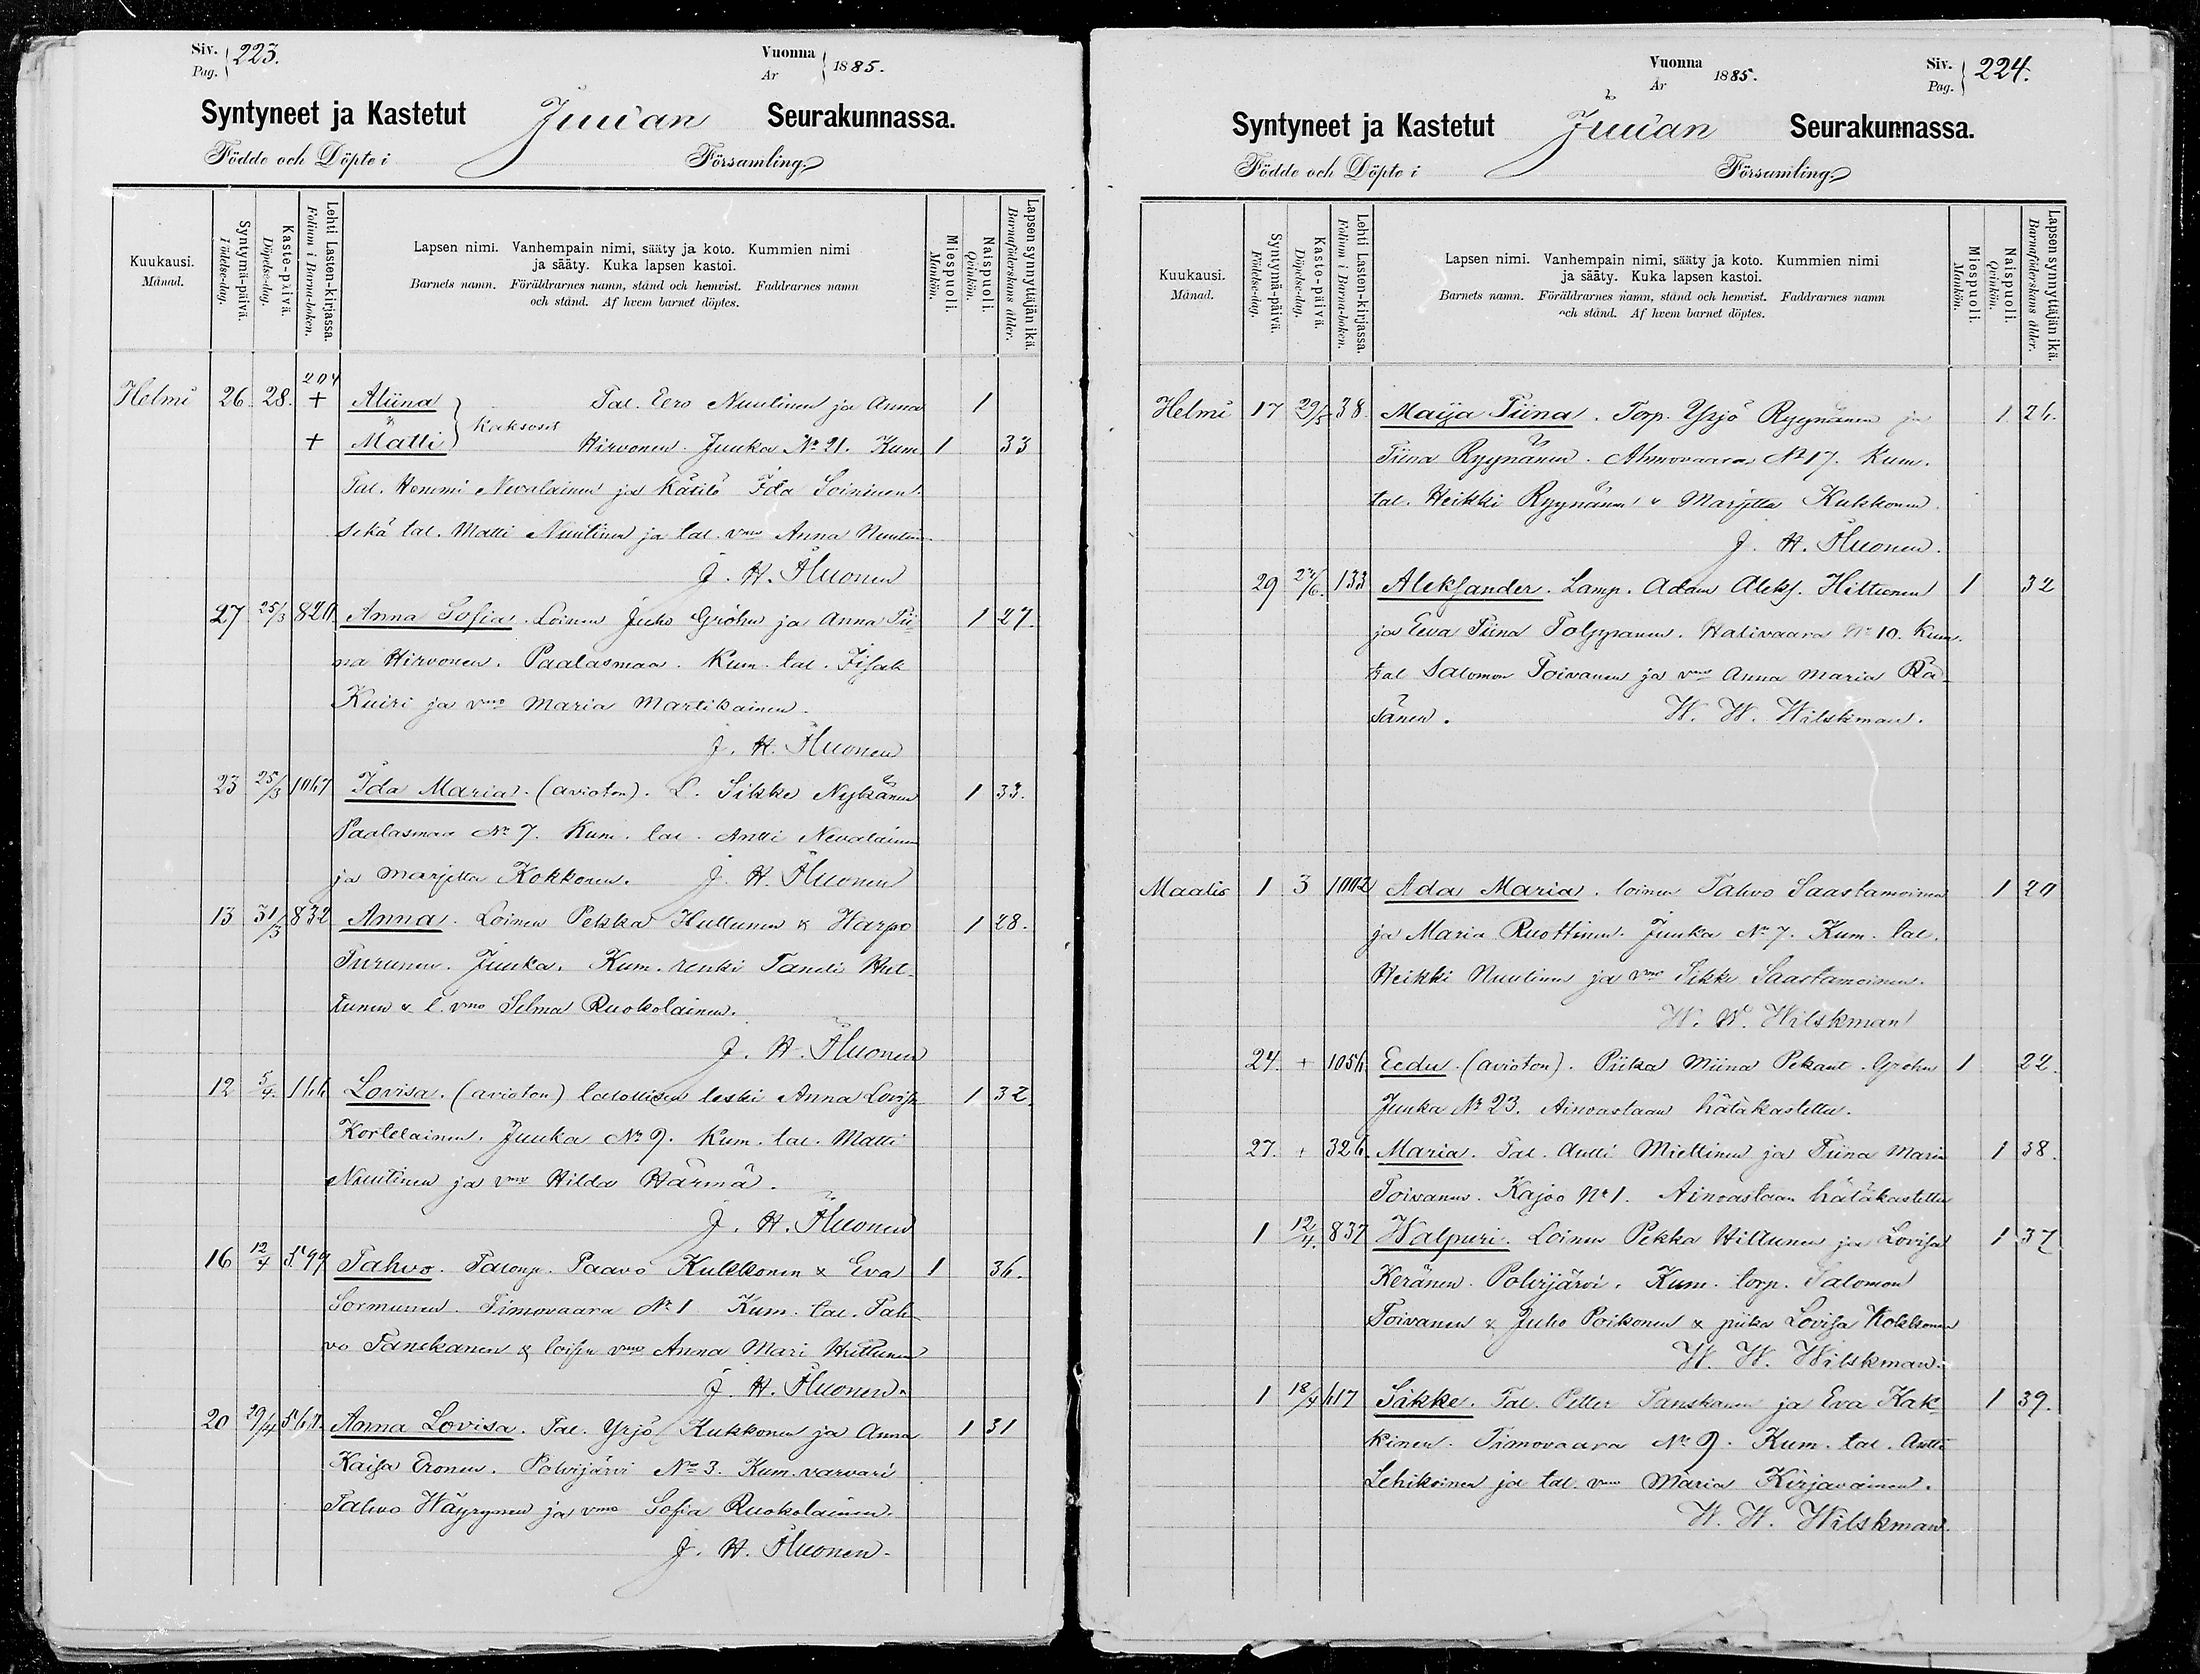 Siv. Pag. 223.
Vuonna År 1885.
Syntyneet ja Kastetut Juuan Seurakunnassa.
Födde och Döpte i Församling
Kuukausi. Månad.
Syntymä-päivä. Födelse-dag.
Kaste-päivä. Döpelse-dag.
Lehti Lasten-kirjassa. Folium i Barna-boken.
Lapsen nimi. Vanhempain nimi, sääty ja koto. Kummien nimi
ja sääty. Kuka lapsen kastoi.
Barnets namn. Föräldrarnes namn, stånd och hemvist. Faddrarnes namn
och stånd. Af hvem barnet döptes.
Miespuoli. Mankön.
Naispuoli. Qvinkön.
Lapsen synnyttäjän ikä. Barnaföderskans ålder.
204
Helmi 26. 28. + Aliina Tal. Eero Nuutinen ja Anna 1
+ Matti Kaksoset Hirvonen. Juuka No 21. Kum 1 33
Tal. Hemmi Nevalainen ja Kätilö Ida Soininen
sekä tal. Matti Nuutinen ja tal. vmo Anna Nuutin
J. H. Fluonen
27 25/3 820 Anna Sofia. Loinen Juho Gröhn ja Anna Tii- 1 27.
na Hirvonen. Paalasmaa. Kum. tal. Iisak
Kuiri ja vmo Maria Martikainen.
J. H. Fluonen
23 25/3 1067 Ida Maria. (avioton). L. Sikke Nykänen 1 33.
Paalasmaa No 7. Kum. tal. Antti Nevalainen
ja Marjetta Kokkonen. J. H. Fluonen
13 31/3 832 Anna. Loinen Pekka Huttunen & Harpo 1 28.
Turunen. Juuka. Kum. renki Taneli Hut-
tunen & l. vmo Selma Ruokolainen.
J. H. Fluonen
12 5/4. 166 Lovisa. (avioton) talollisen leski Anna Lovisa 1 32.
Kortelainen. Juuka No 9. Kum. tal. Matti
Nuutinen ja vmo Hilda Härmä.
J. H. Fluonen
16 12/4 599 Tahvo. Talonp. Paavo Kukkonen & Eva 1 36.
Sormunen. Timovaara No 1 Kum. tal. Tah-
vo Tanskanen & loisen vmo Anna Mari Huttunen
J. H. Fluonen.
20 29/4 Anna Lovisa. Tal. Yrjö Kukkonen ja Anna 1 31
Kaisa Eronen. Polvijärvi No 3. Kum. varvari
Tahvo Wäyrynen ja vmo Sofia Ruokolainen.
J. H. Fluonen.
Vuonna År 1885.
Siv. Pag. 224.
Syntyneet ja Kastetut Juuan Seurakunnassa.
Födde och Döpte i Församling
Kuukausi. Månad.
Syntymä-päivä. Födelse-dag.
Kasto-päivä. Döpelse-dag.
Lehti Lasten-kirjassa. Folium i Barna-boken.
Lapsen nimi. Vanhempain nimi, sääty ja koto. Kummien nimi
ja sääty. Kuka lapsen kastoi.
Barnets namn. Föräldrarnes namn, stånd och hemvist. Faddrarnes namn
och stånd. Af hvem barnet döptes.
Miespuoli. Mankön.
Naispuoli. Qvinkön.
Lapsen synnyttäjän ikä. Barnaföderskans ålder.
Helmi 17 29/5 38. Maija Tiina. Torp. Yrjö Ryynänen ja 1 26.
Tiina Ryynänen. Ahmovaara No 17. Kum.
tal. Heikki Ryynänen & Marjetta Kukkonen.
J. H. Fluonen.
29 133 Aleksander. Lamp. Adam Aleks. Hiltunen 1 32
ja Eeva Tiina Tolppanen. Halivaara No 10. Kum.
tal Salomon Toivanen ja vmo Anna Maria Rä-
sänen. W. W. Wilskman.
Maalis 1 3 1002 Ada Maria. loinen Tahvo Saastamoinen 1 20
ja Maria Ruottinen. Juuka No 7. Kum. tal.
Heikki Nuutinen ja vmo Sikke Saastamoinen.
W. W. Wilskman
24. + 1056 Eedu. (avioton). Piika Miina Pekant. Gröhn 1 22.
Juuka No 23. Ainoastaan hätäkastettu.
27. + 326. Maria. Tal. Antti Miettinen ja Tiina Maria 1 38.
Toivanen. Kajoo No 1. Ainoastaan hätäkastettu
1 12/4. 837 Walpuri. Loinen Pekka Hiltunen ja Lovisa 1 37
Keränen. Polvijärvi. Kum. torp. Salomon
Toivanen & Juho Poikonen & piika Lovisa Kokkonen
W. W. Wilskman.
1 18/4 617 Sikke. Tal. Petter Tanskanen ja Eva Kak- 1 39.
kinen. Timovaara No 9. Kum. tal. Antti
Lehikoinen ja tal. vmo Maria Kirjavainen.
W. W. Wilskman.